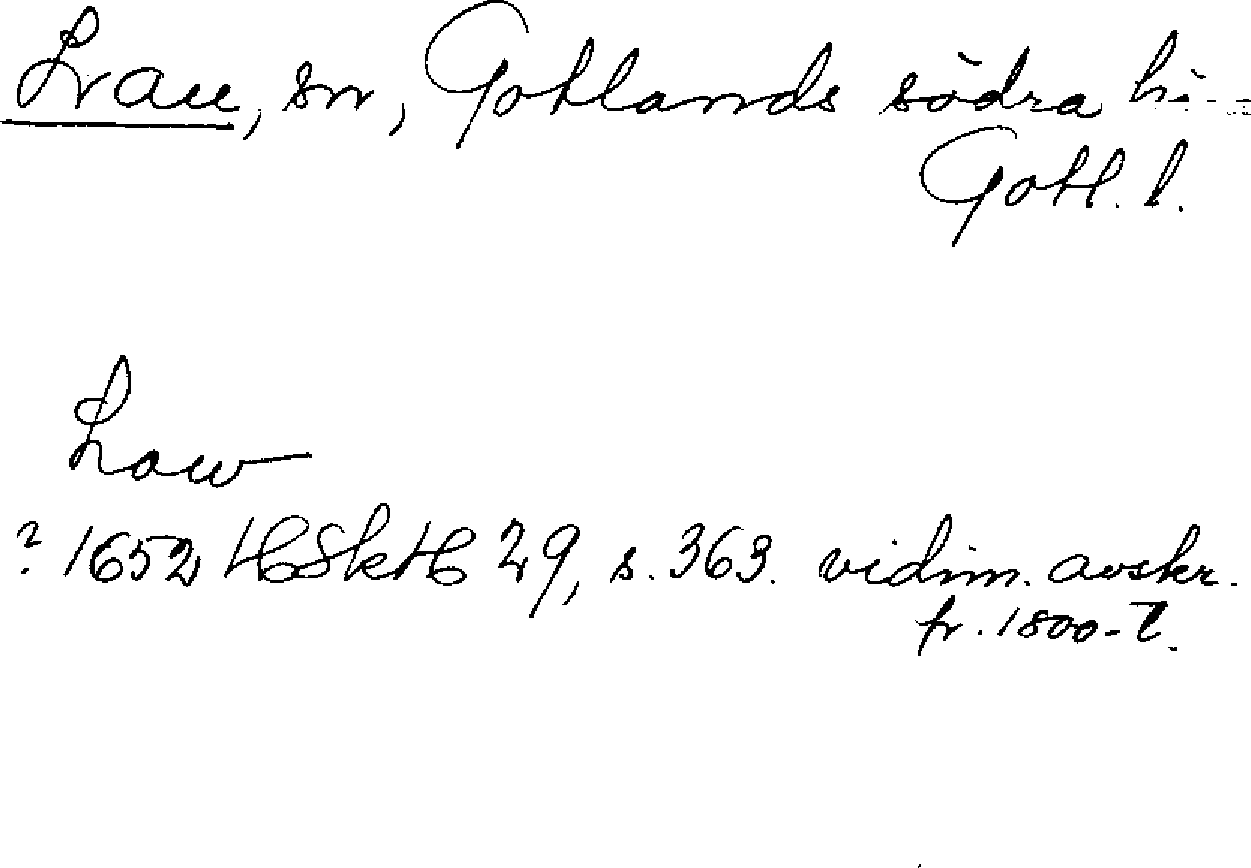 Lau, sn, Gotlands södra hd
Gotl. l.
Law
? 1652 HSkH 29, s. 363. vidim. avskr.
fr. 1800-t.